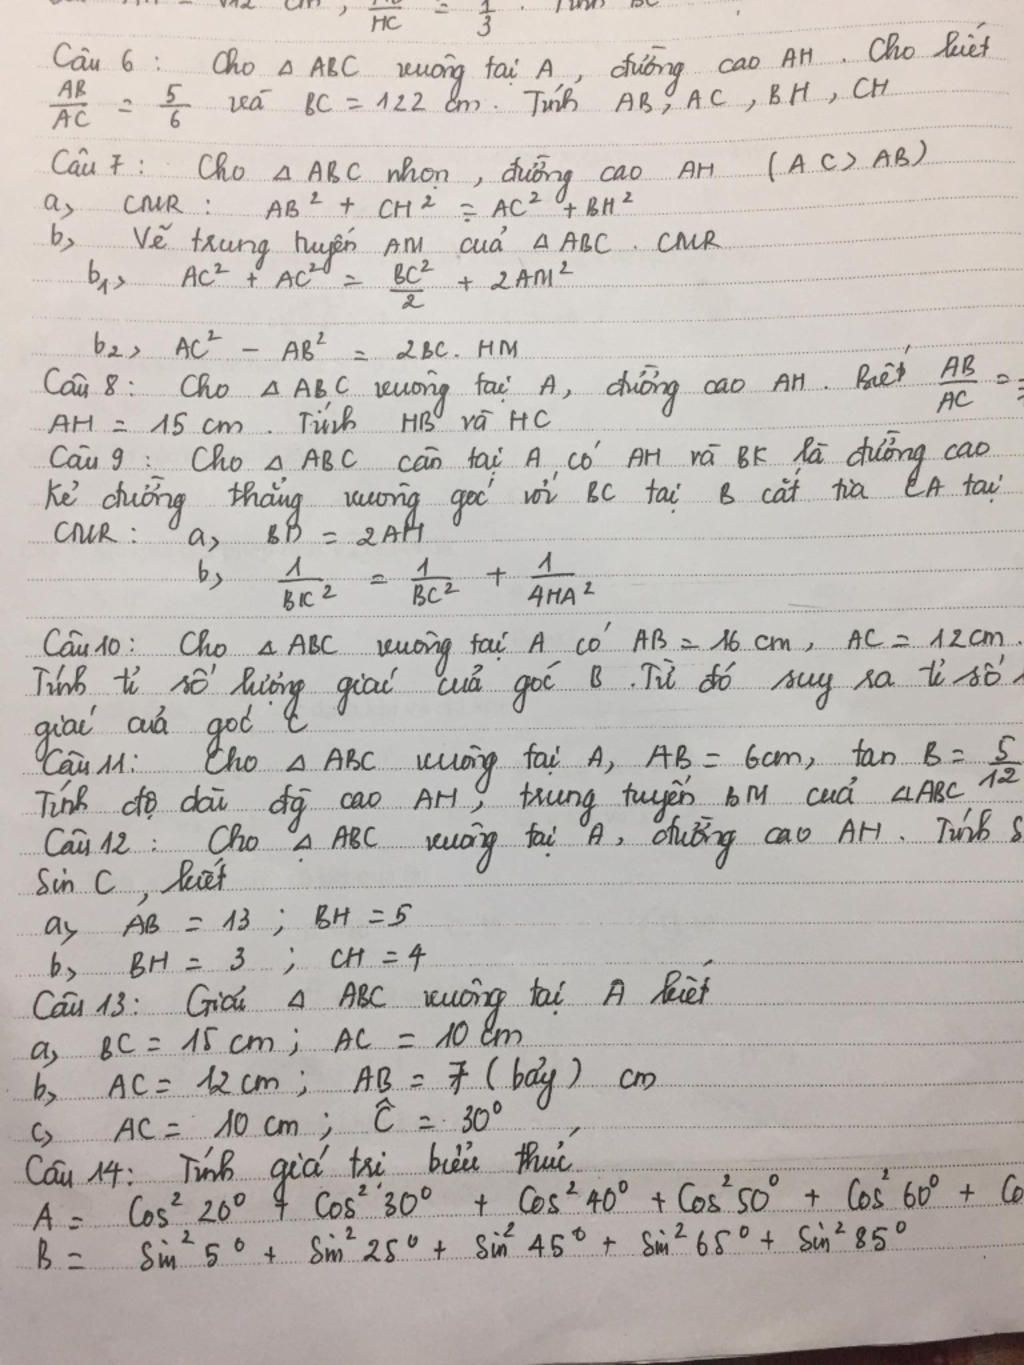 HC 3
Câu 6 : Cho △ ABC vuông tại A , đường cao AH . Cho biết
AB/AC = 5/6 và BC = 122 cm . Tính AB , AC , BH , CH
Câu 7 : Cho △ ABC nhọn , đường cao AH ( AC > AB )
a, CMR : AB² + CH² = AC² + BH²
b, Vẽ trung tuyến AM của △ ABC . CMR
b₁, AC² + AC² = BC²/2 + 2AM²
b₂, AC² - AB² = 2BC . HM
Câu 8 : Cho △ ABC vuông tại A , đường cao AH . Biết AB/AC =
AH = 15 cm . Tính HB và HC
Câu 9 : Cho △ ABC cân tại A có AH và BK là đường cao
Kẻ đường thẳng vuông góc với BC tại B cắt tia CA tại
CMR : a, BD = 2AH
b, 1/BK² = 1/BC² + 1/4HA²
Câu 10 : Cho △ ABC vuông tại A có AB = 16 cm , AC = 12 cm .
Tính tỉ số lượng giác của góc B . Từ đó suy ra tỉ số
giác của góc C
Câu 11 : Cho △ ABC vuông tại A , AB = 6cm , tan B = 5/12
Tính độ dài đg cao AH , trung tuyến BM của △ABC
Câu 12 : Cho △ ABC vuông tại A , đường cao AH . Tính
Sin C , biết
a, AB = 13 ; BH = 5
b, BH = 3 ; CH = 4
Câu 13 : Giải △ ABC vuông tại A biết
a, BC = 15 cm ; AC = 10 cm
b, AC = 12 cm ; AB = 7 ( bảy ) cm
c, AC = 10 cm ; Ĉ = 30°
Câu 14 : Tính giá trị biểu thức
A = Cos² 20° + Cos² 30° + Cos² 40° + Cos² 50° + Cos² 60° + Co
B = Sin² 5° + Sin² 25° + Sin² 45° + Sin² 65° + Sin² 85°